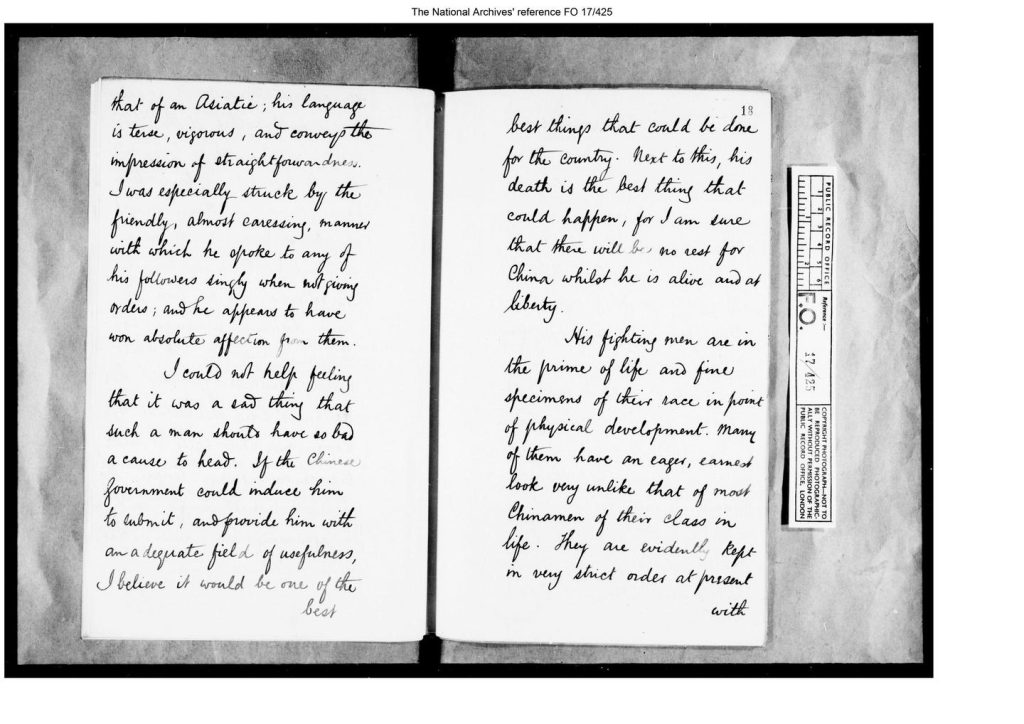 The National Archives' reference FO 17/425
that of an Asiatic; his language
is terse, vigorous, and conveys the
impression of straightforwardness.
I was especially struck by the
friendly, almost caressing, manner
with which he spoke to any of
his followers singly when not giving
orders; and he appears to have
won absolute affection from them.
I could not help feeling
that it was a sad thing that
such a man should have so bad
a cause to head. If the Chinese
Government could induce him
to submit, and provide him with
an adequate field of usefulness,
I believe it would be one of the
best
18
best things that could be done
for the country. Next to this, his
death is the best thing that
could happen, for I am sure
that there will be no rest for
China whilst he is alive and at
liberty.
His fighting men are in
the prime of life and fine
specimens of their race in point
of physical development. Many
of them have an eager, earnest
look very unlike that of most
Chinamen of their class in
life. They are evidently kept
in very strict order at present
with
PUBLIC RECORD OFFICE
1 2 3 4 5 6
1 2
Reference :-
F.O. 17/425
COPYRIGHT PHOTOGRAPH—NOT TO
BE REPRODUCED PHOTOGRAPHIC-
ALLY WITHOUT PERMISSION OF THE
PUBLIC RECORD OFFICE, LONDON